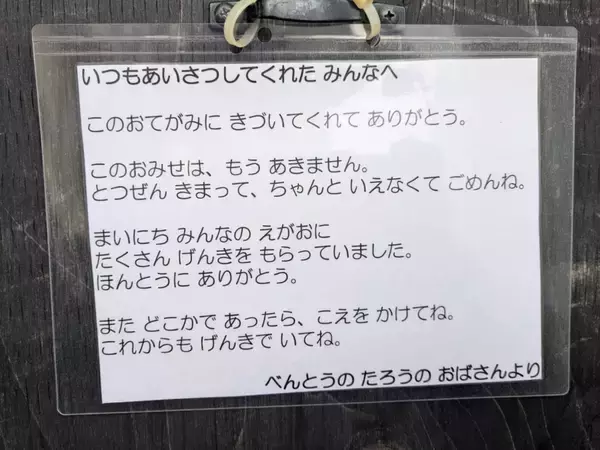 いつもあいさつしてくれた みんなへ
このおてがみに きづいてくれて ありがとう。
このおみせは、もう あきません。
とつぜん きまって、ちゃんと いえなくて ごめんね。
まいにち みんなの えがおに
たくさん げんきを もらっていました。
ほんとうに ありがとう。
また どこかで あったら、こえを かけてね。
これからも げんきで いてね。
べんとうの たろうの おばさんより